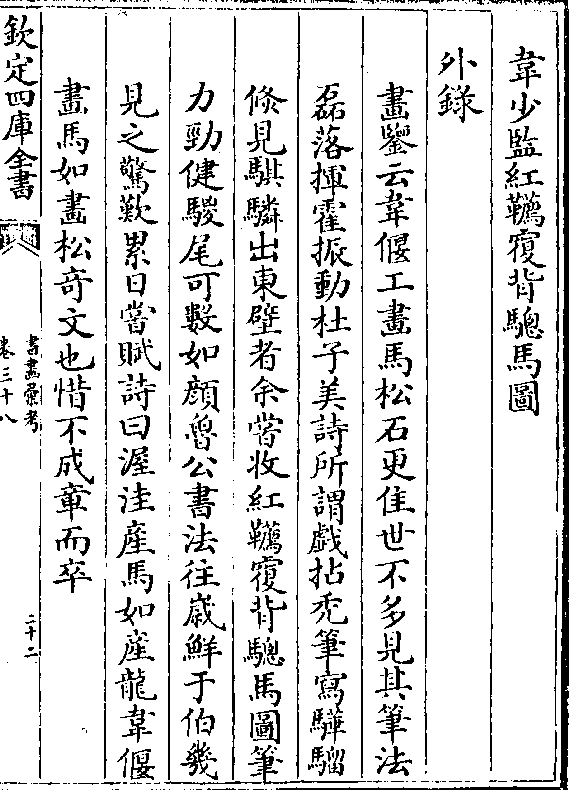 韋少監紅韉覆背驄馬圖
外錄
畫鑒云韋偃工畫馬松石更佳世不多見其筆法
磊落揮霍振動杜子美詩所謂戲拈禿筆寫驊騮
倐見騏驎出東壁者余嘗收紅韉覆背驄馬圖筆
力勁健駿尾可數如顔魯公書法往嵗鮮于伯幾
見之驚歎累日嘗賦詩曰渥洼産馬如産龍韋偃
畫馬如畫松奇文也惜不成章而卒
欽定四庫全書
書畵彙考
卷三十八
二十二